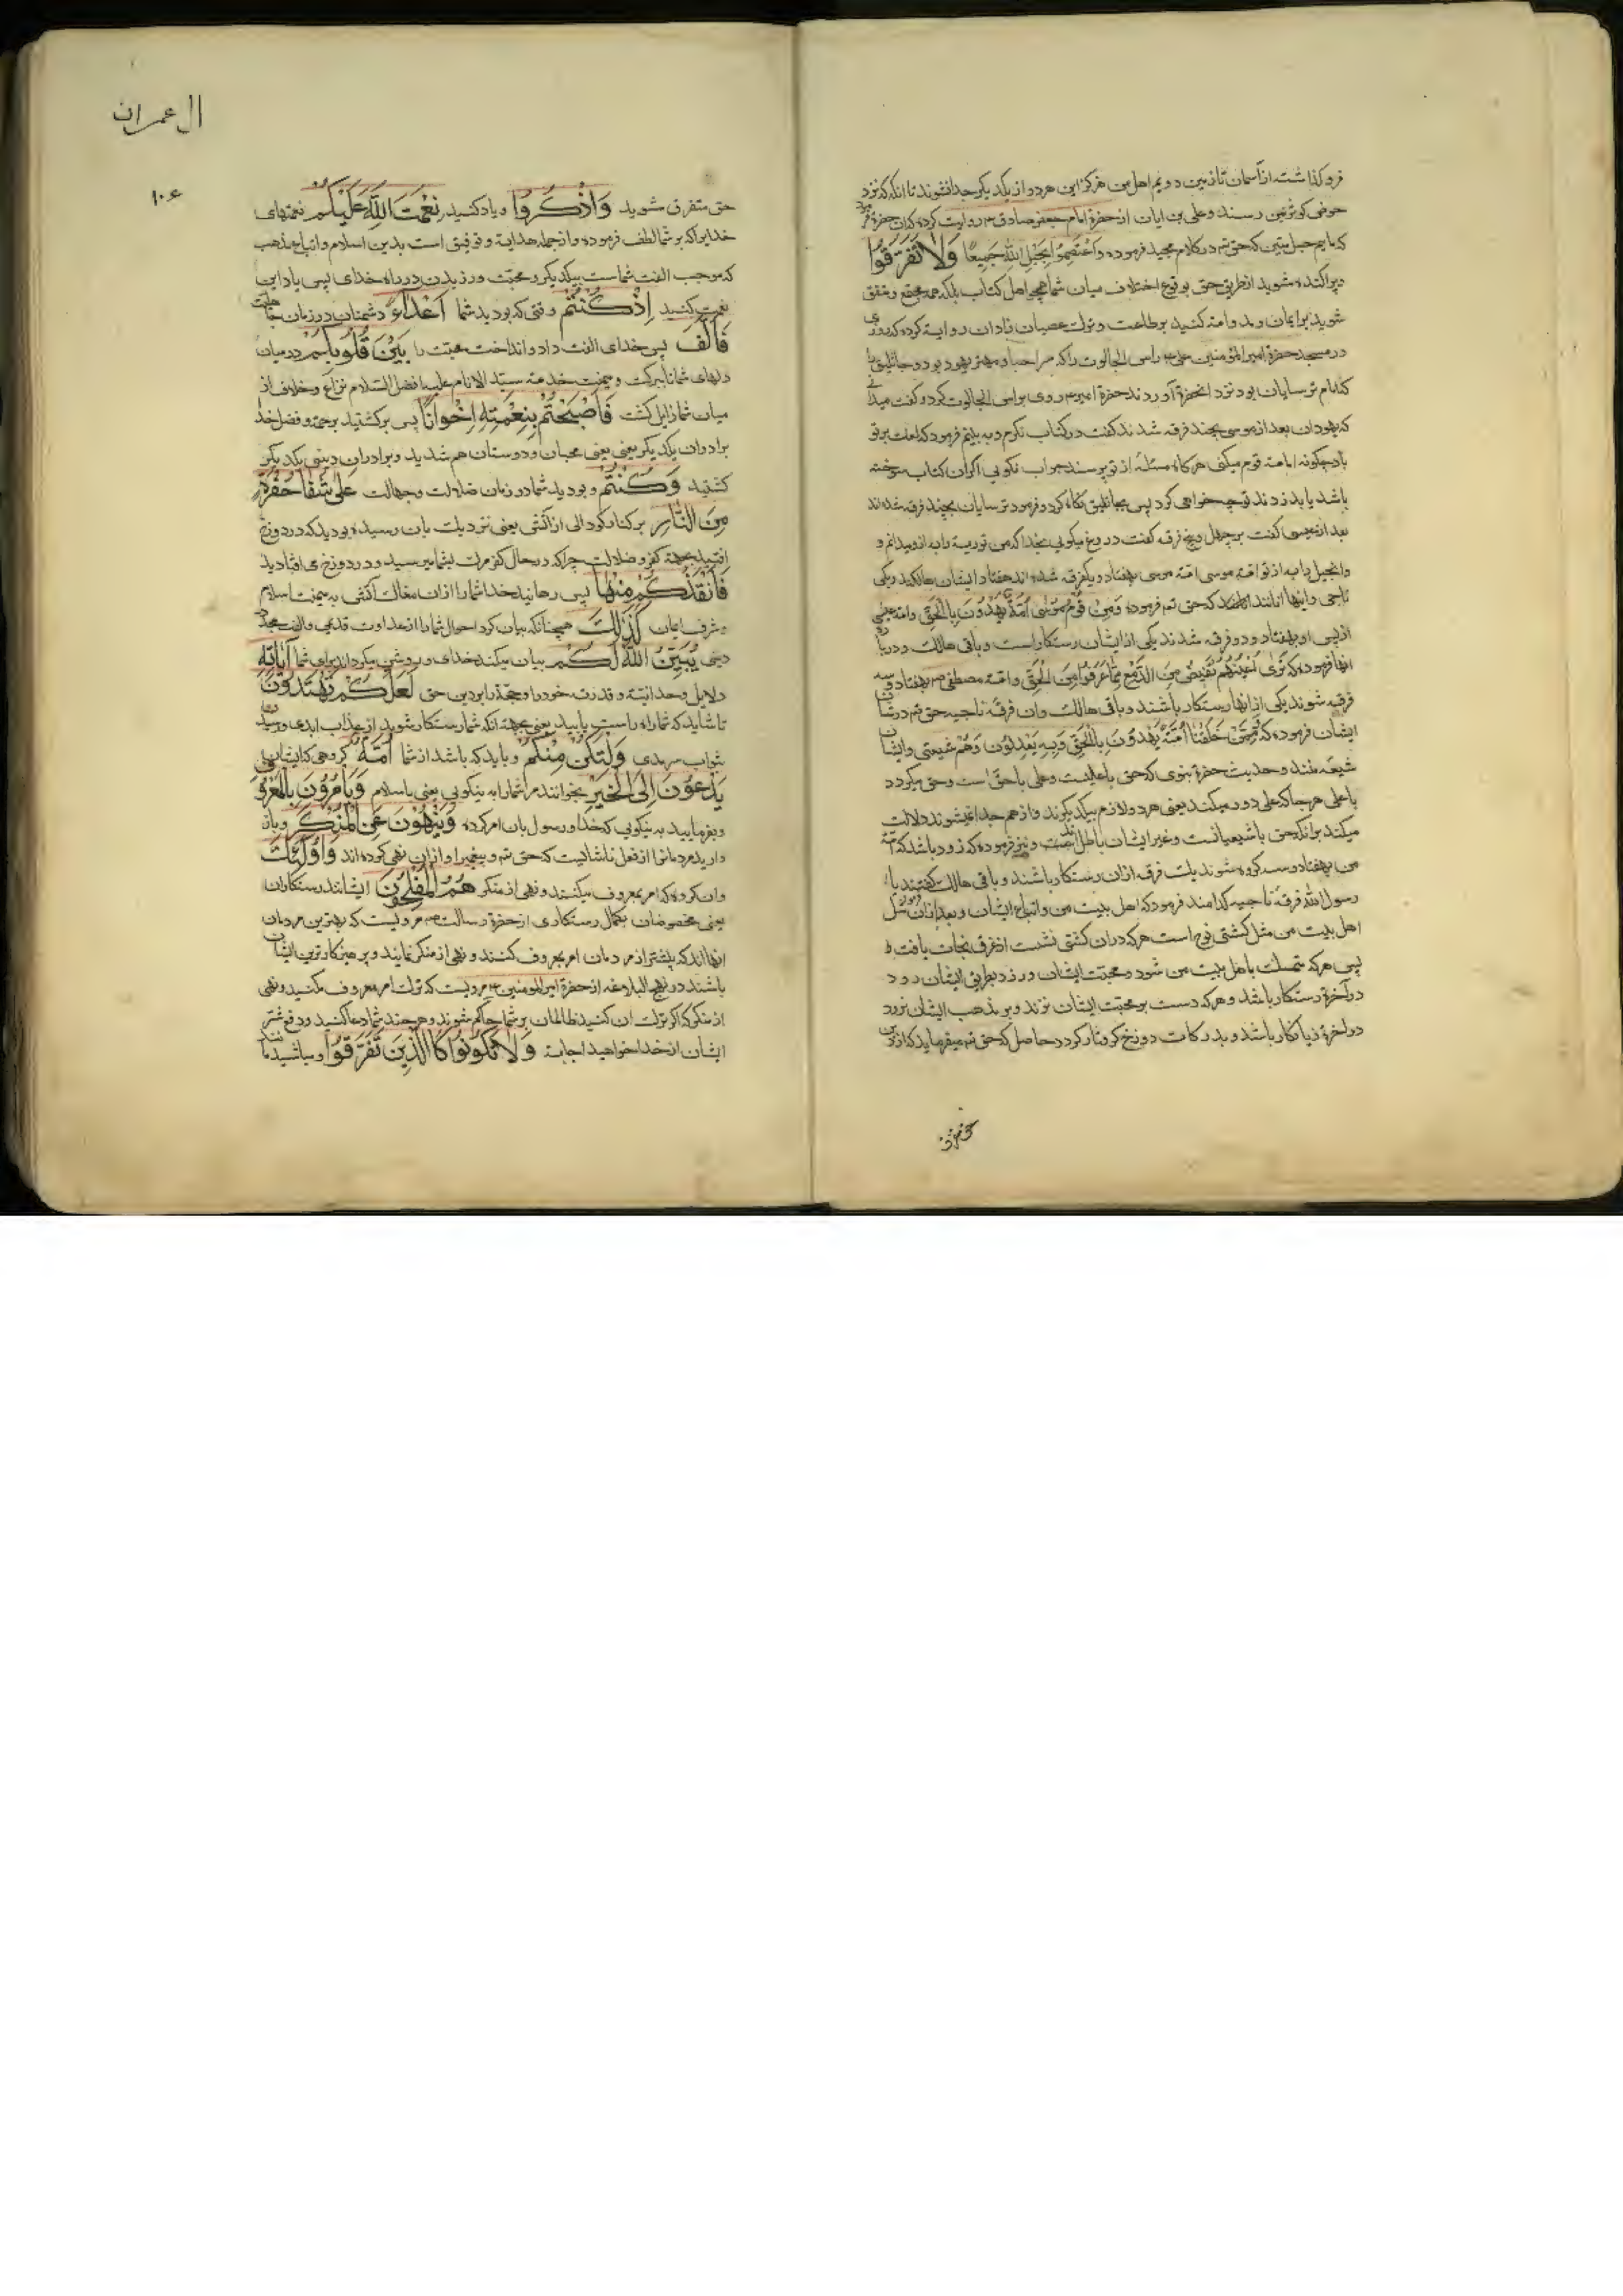 فروکذاشته از آسمان تا زمین دویم اهل من هرکز این هردو از یکدیکر جدا نشوند تا انکه نزد
حوض کوثر بمن رسند وعلی بن ابان از حضرة امام جعفر صادق ع روایت کرده که ان حضرة فرمود
که ماییم حبل متین که حق تم در کلام مجید فرموده وَاعْتَصِمُوا بِحَبْلِ اللّٰهِ جَمِيعًا وَلَا تَفَرَّقُوا
وپراکنده مشوید از طریق حق بوقوع اختلاف میان شما همچو اهل کتاب بلکه همه مجتمع ومتفق
شوید بر ایمان ومداومة کنید بر طاعت وترک عصیان زادان روایة کرده که روزی
در مسجد حضرة امیر المؤمنین علی ع راس الجالوت را که سر احبار ومهتر یهود بود وجاثلیق را
که امام ترسایان بود نزد انحضرة آوردند حضرة امیر ع روی براس الجالوت کرد وکفت میدانی
که یهودان بعد از موسی بچند فرقه شدند کفت در کتاب نکرم وبه بینم فرمود که لعنت بر تو
باد چکونه امامة قوم میکنی هرکاه مسئلهٔ از تو پرسند جواب نکویی اکر ان کتاب سوخته
باشد یا بدزدند تو چه خواهی کرد پس بجاثلیق نکاه کرد وفرمود ترسایان بچند فرقه شده اند
بعد از عیسی کفت بر چهل وپنج فرقه کفت دروغ میکویی بخدا که من توریة را به از تو میدانم و
وانجیل را به از تو امّة موسی بهفتاد ویکفرقه شده اند هفتاد از ایشان هالکند ویکی
ناجی واینها انانند که حق تم فرموده وَمِنْ قَوْمِ مُوسٰى اُمَّةٌ يَهْدُونَ بِالْحَقِّ وامّة عیسی
از پس او بهفتاد ودو فرقه شدند یکی از ایشان رستکار است وباقی هالک ودر بارهٔ
انها فرموده که تَرٰى اَعْيُنَهُمْ تَفِيضُ مِنَ الدَّمْعِ مِمَّا عَرَفُوا مِنَ الْحَقِّ وامّة مصطفی ص بهفتاد وسه
فرقه شوند یکی از انها رستکار باشند وباقی هالک وان فرقهٔ ناجیه حق تم در شان
ایشان فرموده که وَمِمَّنْ خَلَقْنَا اُمَّةٌ يَهْدُونَ بِالْحَقِّ وَبِهِ يَعْدِلُونَ وَهُمْ شیعتی وایشان
شیعهٔ منند وحدیث حضرة نبوی که حق با علیست وعلی با حق است وحق میکردد
با علی هر جا که علی دور میکند یعنی هر دو لازم یکدیکرند واز هم جدا نمیشوند دلالت
میکند بر انکه حق با شیعیانست وغیر ایشان باطلند ونیز فرموده که زود باشد که امّة
من بهفتاد وسه کروه شوند یک فرقه از ان رستکار باشند وباقی هالک کفتند یا
رسول اللّٰه فرقهٔ ناجیه کدامند فرمود که اهل بیت من واتباع ایشان وبعد از ان فرمود مثل
اهل بیت من مثل کشتی نوح است هرکه در ان کشتی نشست از غرق نجات یافت
پس هرکه متمسک باهل بیت من شود ومحبّت ایشان ورزد وبطریق ایشان رود
در آخرة رستکار باشد وهرکه دست بر محبّت ایشان نزند وبر مذهب ایشان نرود
در اخرة زیانکار باشد وبدرکات دوزخ کرفتار کردد حاصل که حق تم میفرماید که از دین
حق متفرق
ال عمران
۱۰۶
حق متفرق مشوید وَاذْكُرُوا ویاد کنید نِعْمَتَ اللّٰهِ عَلَيْكُمْ نعمتهای
خدایرا که بر شما لطف فرموده واز جمله هدایة وتوفیق است بدین اسلام واتباع مذهب
که موجب الفت شماست بیکدیکر ومحبّت ورزیدن در راه خدای پس یاد این
نعمت کنید اِذْ كُنْتُمْ وقتی که بودید شما اَعْدَاءً دشمنان در زمان جاهلیت
فَاَلَّفَ پس خدای الفت داد وانداخت محبّت را بَيْنَ قُلُوبِكُمْ در میان
دلهای شما تا ببرکت ومیمنت خدمة سیّد الانام علیه افضل السّلام نزاع وخلاف از
میان شما زایل کشت فَاَصْبَحْتُمْ بِنِعْمَتِهِ اِخْوَانًا پس برکشتید برحمة وفضل خدا
برادران یکدیکر یعنی محبان ودوستان هم شدید وبرادران دینی یکدیکر
کشتید وَكُنْتُمْ وبودید شما در زمان ضلالت وجهالت عَلٰى شَفَا حُفْرَةٍ
مِنَ النَّارِ بر کنار کودالی از آتش یعنی نزدیک بان رسیده بودید که در دوزخ
افتید بجهة کفر وضلالت چرا که در حال کفر مرک بشما میرسید ودر دوزخ می افتادید
فَاَنْقَذَكُمْ مِنْهَا پس رهانید خدا شما را از ان مغاک آتش به میمنت اسلام
وشرف ایمان كَذٰلِكَ همچنانکه بیان کرد احوال شما را از عداوت قدیمی والفت مجدّد
دینی يُبَيِّنُ اللّٰهُ لَكُمْ بیان میکند خدای وروشن میکرداند برای شما آيَاتِهِ
دلایل وحدانیّة وقدرت خود را وحجة را بر دین حق لَعَلَّكُمْ تَهْتَدُونَ
تا شاید که شما راه راست یابید یعنی بجهة انکه شما رستکار شوید از عذاب ابدی ورسید
بثواب سرمدی وَلْتَكُنْ مِنْكُمْ وباید که باشد از شما اُمَّةٌ کروهی که ایشان
يَدْعُونَ اِلَى الْخَيْرِ بخوانند مر شما را به نیکویی یعنی باسلام وَيَاْمُرُونَ بِالْمَعْرُوفِ
وبفرمایید به نیکویی که خدا ورسول بان امر کرده وَيَنْهَوْنَ عَنِ الْمُنْكَرِ وباز
دارید مردمانرا از فعل ناشایست که حق تم وپیغمبر او از ان نهی کرده اند وَاُولٰئِكَ
وان کروه که امر بمعروف میکنند ونهی از منکر هُمُ الْمُفْلِحُونَ ایشانند رستکاران
یعنی مخصوصان بکمال رستکاری از حضرة رسالت ص مرویست که بهترین مردمان
انهااند که بیشتر از مردمان امر بمعروف کنند ونهی از منکر نمایند وپرهیزکارترین ایشان
باشند در نهج البلاغه از حضرة امیر المومنین ع مرویست که ترک امر بمعروف مکنید ونهی
از منکر که اکر ترک ان کنید ظالمان بر شما حاکم شوند وهر چند شما دعا کنید ودفع شر
ایشان از خدا خواهید اجابة وَلَا تَكُونُوا كَالَّذِينَ تَفَرَّقُوا ومباشید مانند